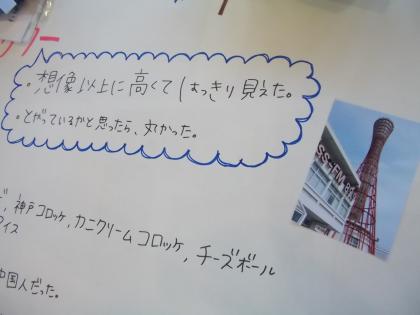 ッター
・想像以上に高くてはっきり見えた。
・とがっているかと思ったら、丸かった。
神戸コロッケ,カニクリームコロッケ,チーズボール
アイス
中国人だった。